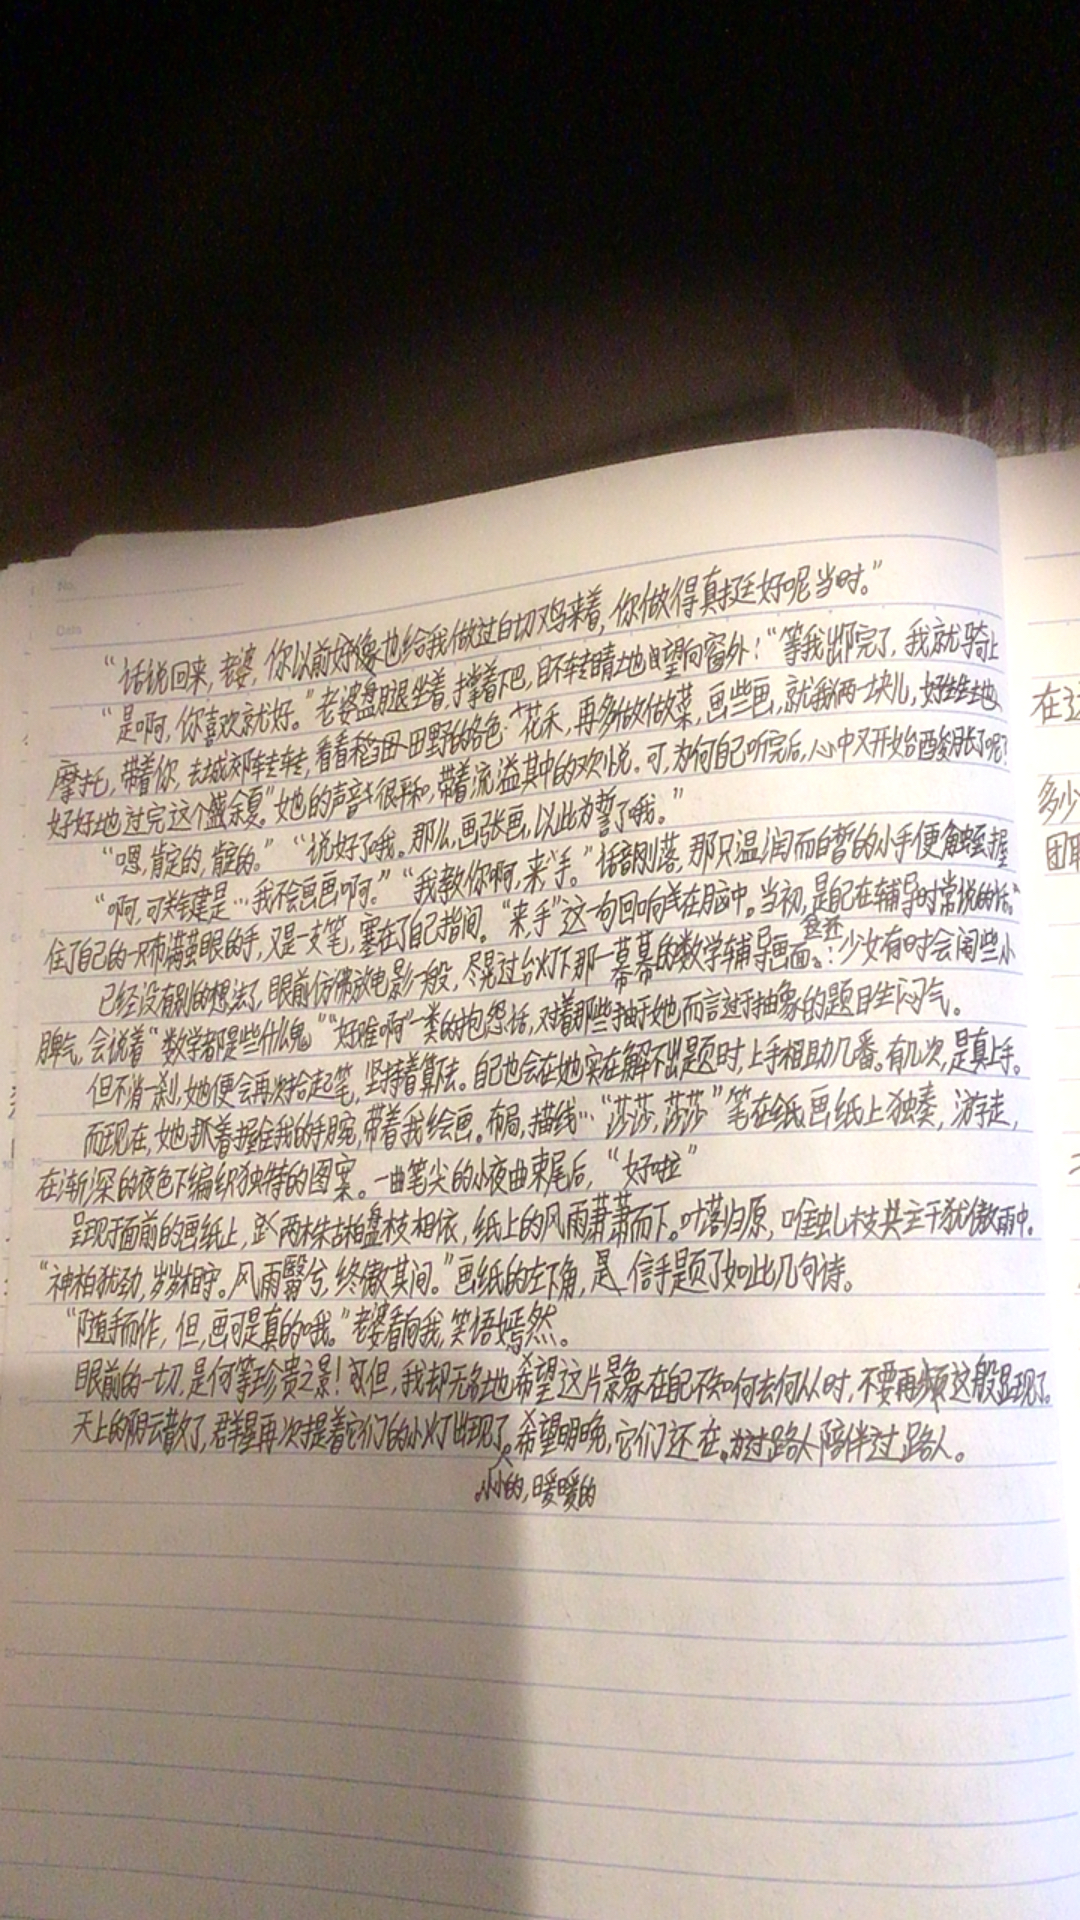 “话说回来，老婆，你以前好像也给我做过白切鸡来着，你做得真挺好呢当时。”
“是啊，你喜欢就好。”老婆盘腿坐着，撑着下巴，目不转睛地望向窗外：“等我出院完了，我就骑上
摩托，带着你，去城郊转转，看看稻田、田野的各色花禾，再多做做菜，画些画，就我俩一块儿，好生生地、
好好地过完这个盛余夏。”她的声音很平和，带着流溢其中的欢悦。可，为何自己听完后，心中又开始酸胀了呢？
“嗯，肯定的，肯定的。”“说好了哦。那么，画张画，以此为誓了哦。”
“啊，可关键是…我不会画画啊。”“我教你啊，来，手。”话音刚落，那只温润而白皙的小手便触到握
住了自己的一只布满茧眼的手，又是一支笔，塞在了自己指间。“来，手”这一句回响在脑中。当初，是自己在辅导时常说的话。
已经没有别的想法了，眼前仿佛放电影一般，尽晃过台灯下那一幕幕的数学辅导画面。：少女有时会闹些小
脾气，会说着“数学都是些什么鬼”“好难啊”一类的抱怨话，对着那些于她而言过于抽象的题目生闷气。
但不消一刹，她便会再次拾起笔，坚持着算下去。自己也会在她实在解不出题时，上手相助几番。有几次，是真上手。
而现在，她抓着握住我的手腕，带着我绘画。布局，描线…“莎莎，莎莎”笔在纸画纸上独奏，游走，
在渐深的夜色下编织独特的图案。一曲笔尖的小夜曲束尾后，“好啦”
呈现于面前的画纸上，两株古柏盘枝相依，纸上的风雨萧萧而下。叶落归原，唯虬枝共主干犹傲雨中。
“神柏犹劲，岁岁相守。风雨翳兮，终傲其间。”画纸的左下角，是信手题了如此几句诗。
“随手而作，但，画可是真的哦。”老婆看向我，笑语嫣然。
眼前的一切，是何等珍贵之景！可但，我却无名地希望这片景象在自己不知何去何从时，不要再频这般显现了。
天上的阴云散了，群星再次提着它们的小灯出现了。希望明晚，它们还在。为过路人陪伴过路人。
小小的，暖暖的
在这
多少
团取